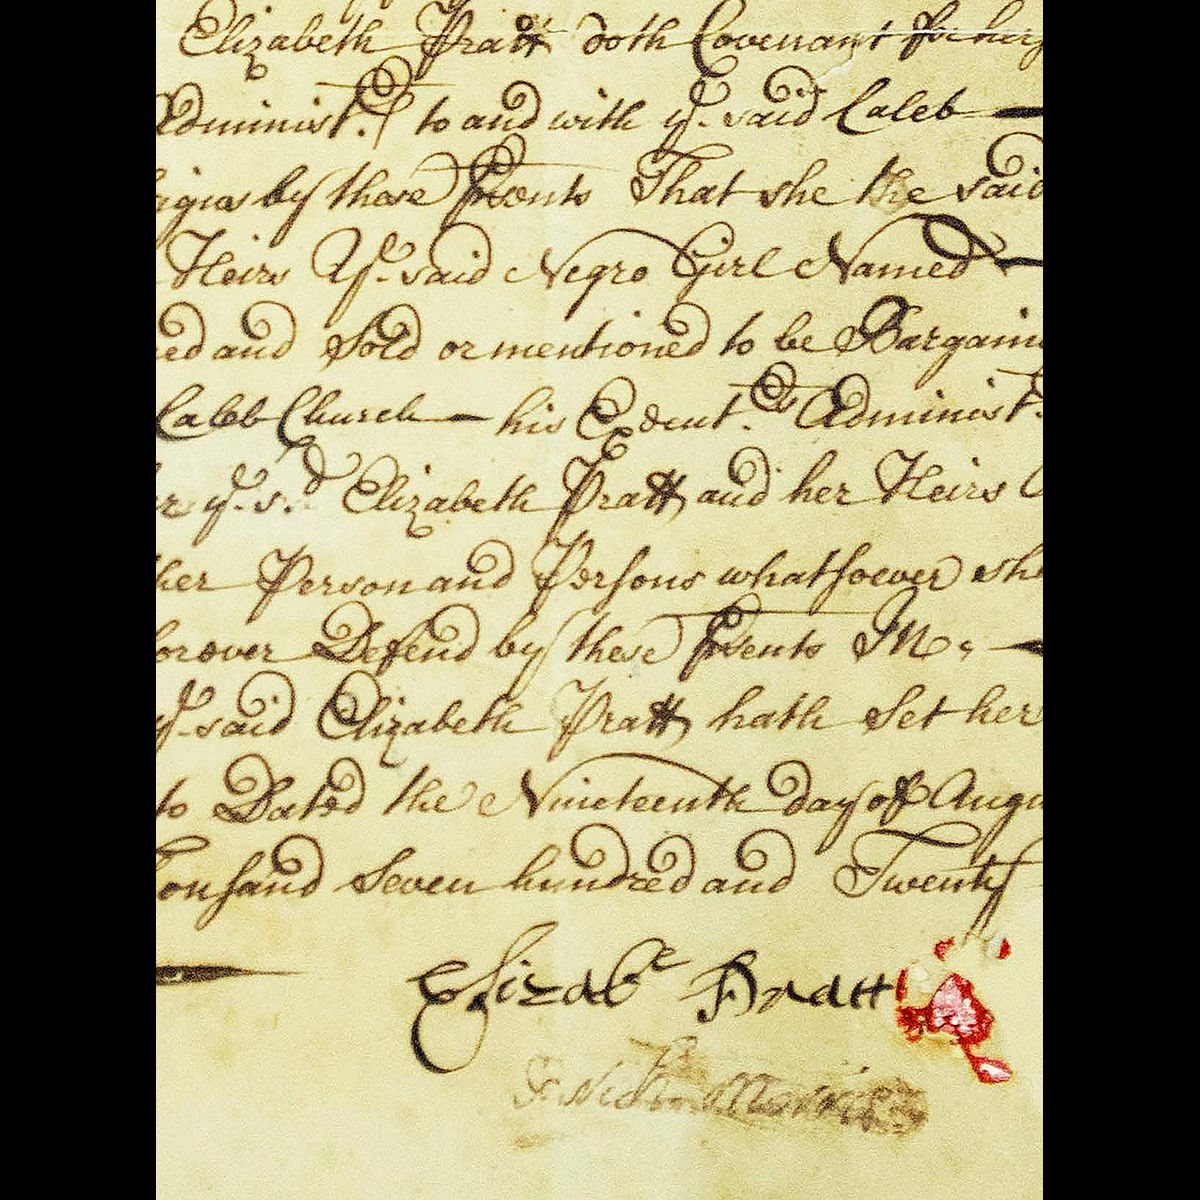 Elizabeth Pratt doth Covenant for her
Administ.rs to and with ye. said Caleb
signs by these Presents That she the said
Heirs Ye. said Negro Girl Named
ed and Sold or mentioned to be Bargain
Caleb Church his Execut.rs Administ.
or ye. s.d Elizabeth Pratt and her Heirs
her Person and Persons whatsoever she
forever Defend by these Presents
ye. said Elizabeth Pratt hath Set her
to Dated the Nineteenth day of Augu
ousand Seven hundred and Twenty
Elizabe Pratt